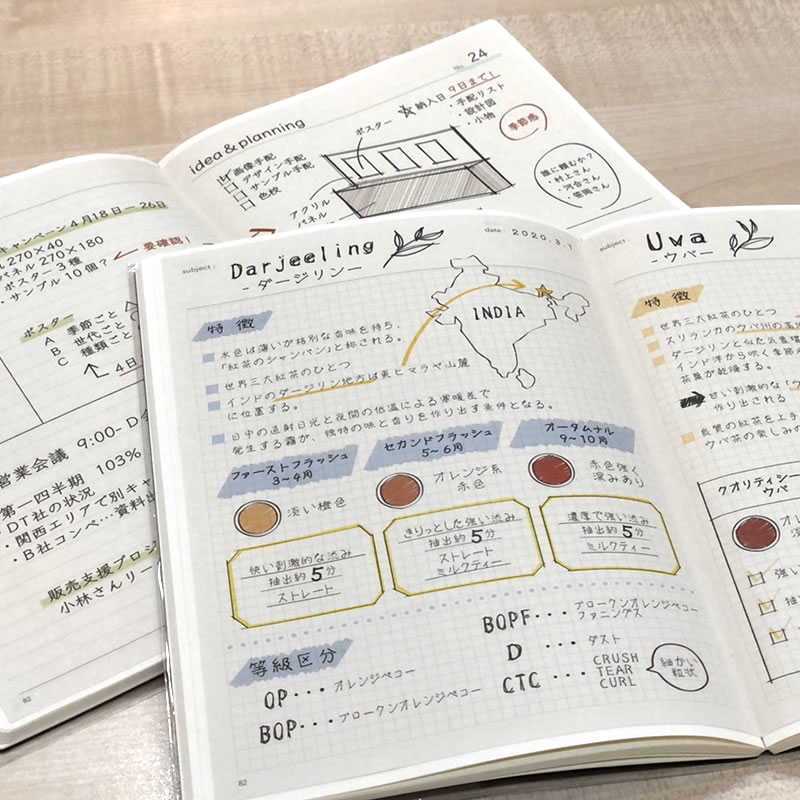 No. 24
idea & planning
画像手配
デザイン手配
サンプル手配
色校
ポスター
アクリル
パネル
納入日 9日まで!
・手配リスト
・設計図
・小物
季節感
誰に頼むか?
・村上さん
・河合さん
キャンペーン 4月18日—26日
270×40
パネル 270×180
ポスター 3種
・サンプル 10個?
要確認!
ポスター
A 季節ごと
B 世代ごと
C 種類ごと
4日
営業会議 9:00-
第一四半期 103%
・DT社の状況
・関西エリアで別キャ
・B社コンペ…資料
販売支援プロジ
小林さんリー
82
subject:
Darjeeling
-ダージリン-
date: 2020.3.1
INDIA
特徴
水色は薄いが格別な香味を持ち、
「紅茶のシャンパン」と称される。
世界三大紅茶のひとつ
インドのダージリン地方は東ヒマラヤ山麓
に位置する。
日中の直射日光と夜間の低温による寒暖差で
発生する霧が、独特の味と香りを作り出す条件となる。
ファーストフラッシュ
3~4月
セカンドフラッシュ
5~6月
オータムナル
9~10月
淡い橙色
オレンジ系
赤色
赤色強く
深みあり
快い刺激的な渋み
抽出約5分
ストレート
きりっとした強い渋み
抽出約5分
ストレート
ミルクティー
濃厚で強い渋み
抽出約5分
ミルクティー
等級区分
OP・・・オレンジペコー
BOP・・・ブロークンオレンジペコー
BOPF・・・ブロークンオレンジペコー
ファニングス
D・・・ダスト
CTC・・・CRUSH
TEAR
CURL
細かい
粒状
82
subject:
Uva
-ウバー-
特徴
世界三大紅茶のひとつ
スリランカのウバ州の高
ダージリンと似た気象環
インド洋から吹く季節
茶葉が乾燥する。
甘い刺激的な「ウ
作り出される
良質の紅茶を上手
ウバ茶の楽しみの
クオリティシー
ウバ
強い